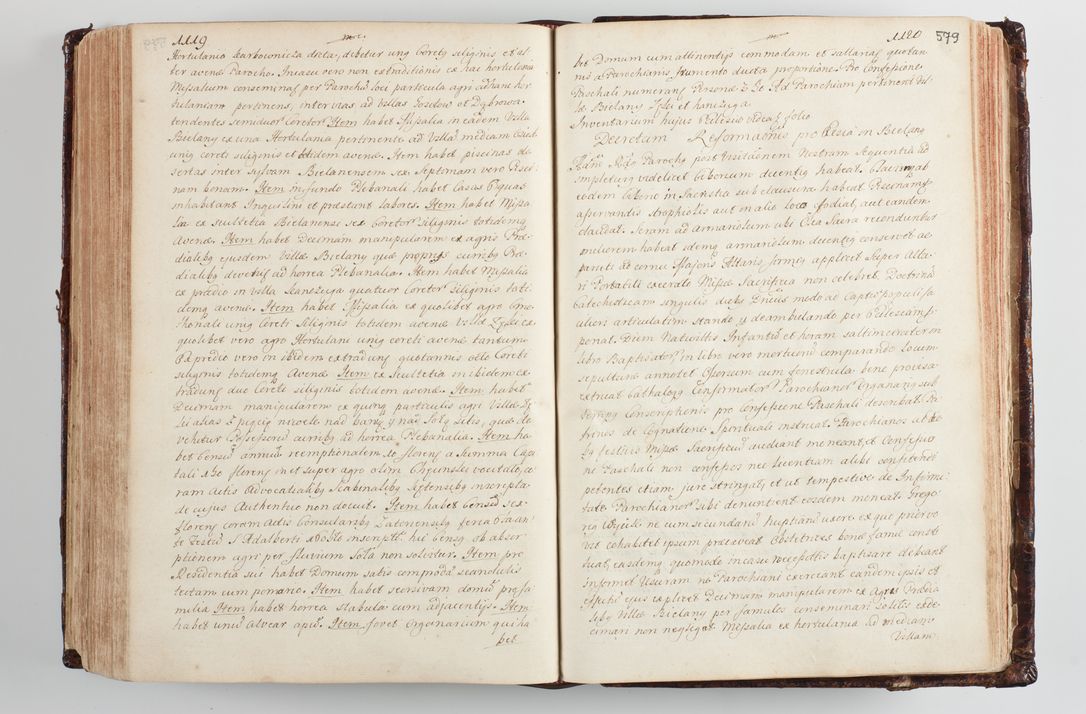 1119
Hortulania karbownicza dicta, debetur unq Coretq siliginis et al
ter avenæ Parocho. Incasu vero non extraditionis ex hac hortulania
Missalium conseminaf per Parochũ loci particula agri ad hanc hor
tulaniam pertinens, inter vias ad Villas Josefow et Dąbrowa
tendentes Item habet Missalia in eadem Villa
Bielany ex una Hortulania pertinente ad Villã mediam
uniq coreti siliginis et totidem avenæ. Item habet piscinas de
sertas inter sylvam Bielanensem sex Septimam vero Pisci
nam bonam. Item in fundo Plebanali habet Casas quas
inhabitant Inquilini et præstant labores. Item habet Missa
lia ex scultetia Bielanense sex Coretor siliginis totidemq
Avenæ. Item habet Decimam manipularem ex agris Præ
dialibq ejusdem Villæ Bielany quæ proprijs curribq Præ
dialibq devehitur ad horrea Plebanalia. Item habet Missalia
ex prædio in Villa Kanczuga quatuor Coretor siliginis toti
demq avenæ. Item habet Missalia ex quolibet agro Cme
thonali uniq Coreti siliginis totidem avenæ Villæ Łęki ex
quolibet vero agro Hortulani uniq coreti avenæ tantum
Prædio vero in ibidem extradunt quotannis octo Coreti
siliginis totidemq Avenæ Item ex Scultetia in ibidem ex
tradunt duo Coreti siliginis totidem avenæ. Item habet
Decimam manipularem ex quinq particulis agri Villæ
alias z pięciu niwole nad burzy y nad Sołą sitis, quæ de
vehitur Possessorũ curribq ad horrea Plebanalia. Item ha
bet Censũ annuũ reemptionalem 10 floreng a Summa Capi
tali 130 floreng inet super agro olim vocitato, co
ram Actis Advocatialibq Scabinalibq inscripta
de cujus Authentico non docuit. Item habet Censũ sex
floreng coram Actis Consularibq Zatoriensibq feria 6ta an
te Festũ S Adalberti 1600 inscriptũ. hui Censq ob absor
ptiõnem agri per fluvium Soła non solvitur. Item pro
Residentia sui habet Domum satis commodã scandulis
tectam cum pomario. Item habet seorsivam domũ pro fa
milia Item habet horrea Stabula cum adjacentijs. Item
habet unũ alvear apiũ. Item fovet Organarium qui ha
bet

1120 579
bet Domum cum attinentijs commodam et sallarians quotan
nis a Parochianis frumento ducta proportione. Pro Confessione
Paschali numerans Personæ Ad Parochiam pertinent Vil
læ Bielany Łęki et Kanczuga
Inventarium hujus Ecclesiæ videas folio
Decretum Reformaõnis pro Ecclesia in Bielany
Admodũ Rndo Parocho post Visitaõnem Nostram Sequentia ad
implentur videlicet Ciborium decentiq habeat. Clavim ab
eodem Ciborio in Sacristia sub clausura habeat Piscinam
asservandis Stropholis aut in alio loco fodiat, aut eandem
claudat. Seram ad armariolum ubi Olea Sacra reconduntur
mulierem habeat idemq armariolum decentiq conservet ac
parieti ad cornu Majoris Altaris formiq applicet super Alta
ri Portatili Missæ Sacrificia non celebret. Doctrinã
Catechisticam singulis diebq Dnicis modo ac Captq populi sa
lieri articulatim stando y deambulando per Ecclesiam ex
ponat. Diem Nativittis Infantiũ et horam saltim circiter in
libro Baptisator, in libro vero mortuorũ comparando Locum
sepulturæ annotet Operum cum fenestrula bene provisa
extruat Cathalogq Confirmator Parochianor Organanq sub
formq Conscriptionis pro Confessione Paschali describat Pa
trinos de Cognatione Spirituali instruat. Parochianos ut bo
bq festivis Missæ Sacrificiũ audiant moneant, et Confessio
nẽ Paschali non confessos nec licentiam alibi confitendi
petentes etiam jure stringat, et ut tempestive de Infirmi
tate Parochianor sibi denuntient eosdem moneat. Grego
riũ Wojcik ne cum secundarũ nuptiarũ uxore ex quo priori
vivit cohabitet ipsum præcaveat Obstetrices bonæ famæ consti
tuat, easdemq quomodo in casu necessittis baptisare debeant
informet Usuram nõ Parochiani exerceant eandem ipsis et
species ejus explicet Decimam manipularem ex Agris Prædia
libq Villæ Bielany per famulos conseminari solitis exde
cimari non negligat Missalia ex hortulania ad mediam
Villam